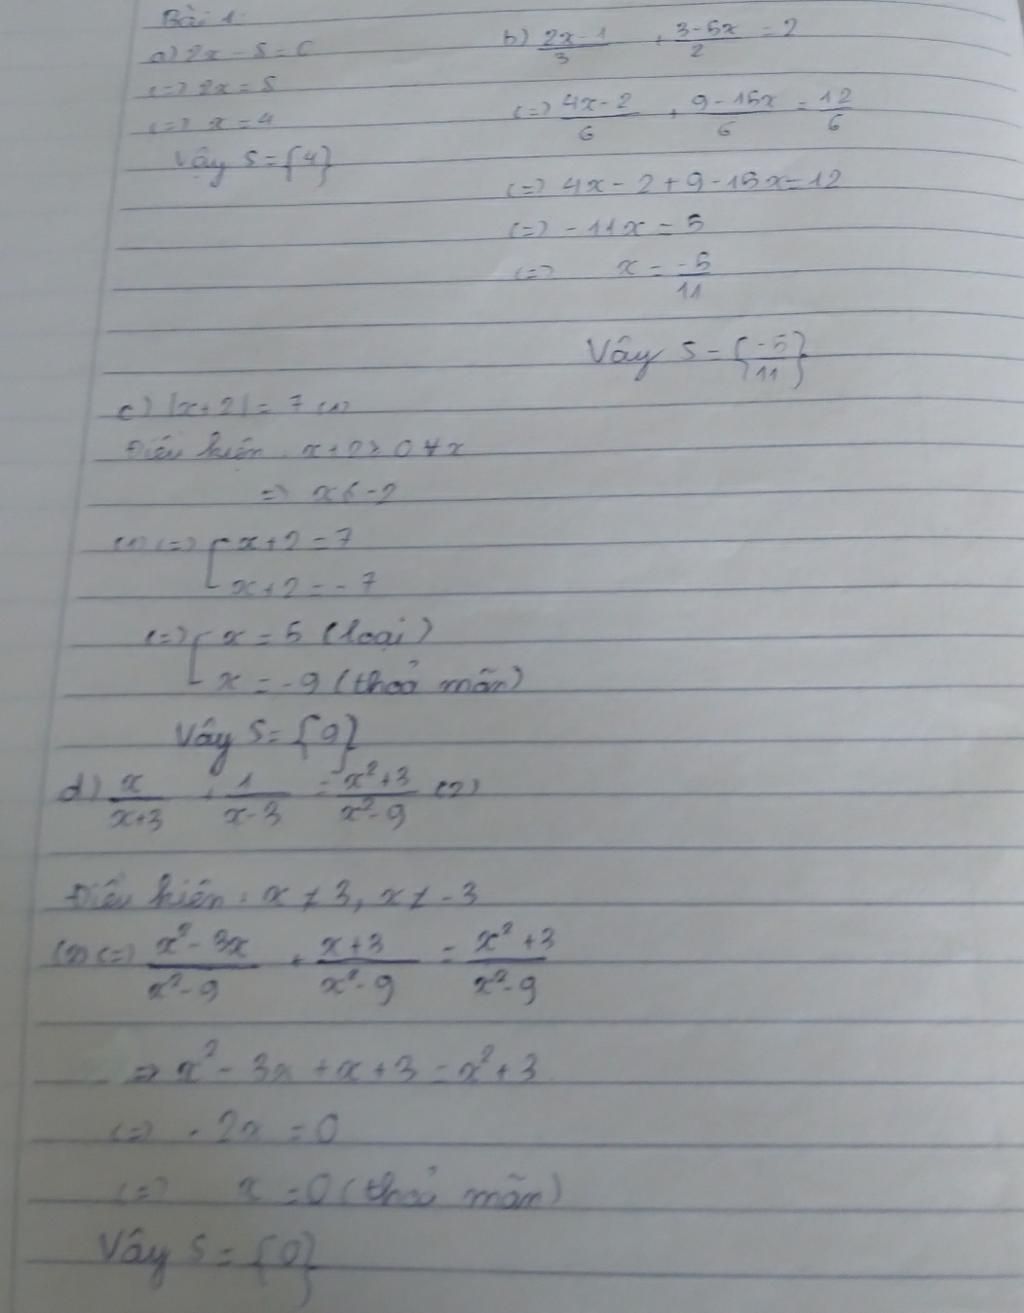 Bài 1:
a) 2x - 8 = 0
<=> 2x = 8
<=> x = 4
Vậy S = {4}
b) \frac{2x-1}{3} + \frac{3-5x}{2} = 2
<=> \frac{4x-2}{6} + \frac{9-15x}{6} = \frac{12}{6}
<=> 4x - 2 + 9 - 15x = 12
<=> -11x = 5
<=> x = \frac{-5}{11}
Vậy S = {\frac{-5}{11}}
c) |x+2| = 7 (1)
Điều kiện: x + 2 ≥ 0 ∀x
=> x ≤ -2
(1) <=> [ x+2 = 7
x+2 = -7
<=> [ x = 5 (loại)
x = -9 (thoả mãn)
Vậy S = {9}
d) \frac{x}{x+3} + \frac{1}{x-3} = \frac{x²+3}{x²-9} (2)
Điều kiện: x ≠ 3, x ≠ -3
(2) <=> \frac{x²-3x}{x²-9} + \frac{x+3}{x²-9} = \frac{x²+3}{x²-9}
=> x² - 3x + x + 3 = x² + 3
<=> -2x = 0
<=> x = 0 (thoả mãn)
Vậy S = {0}